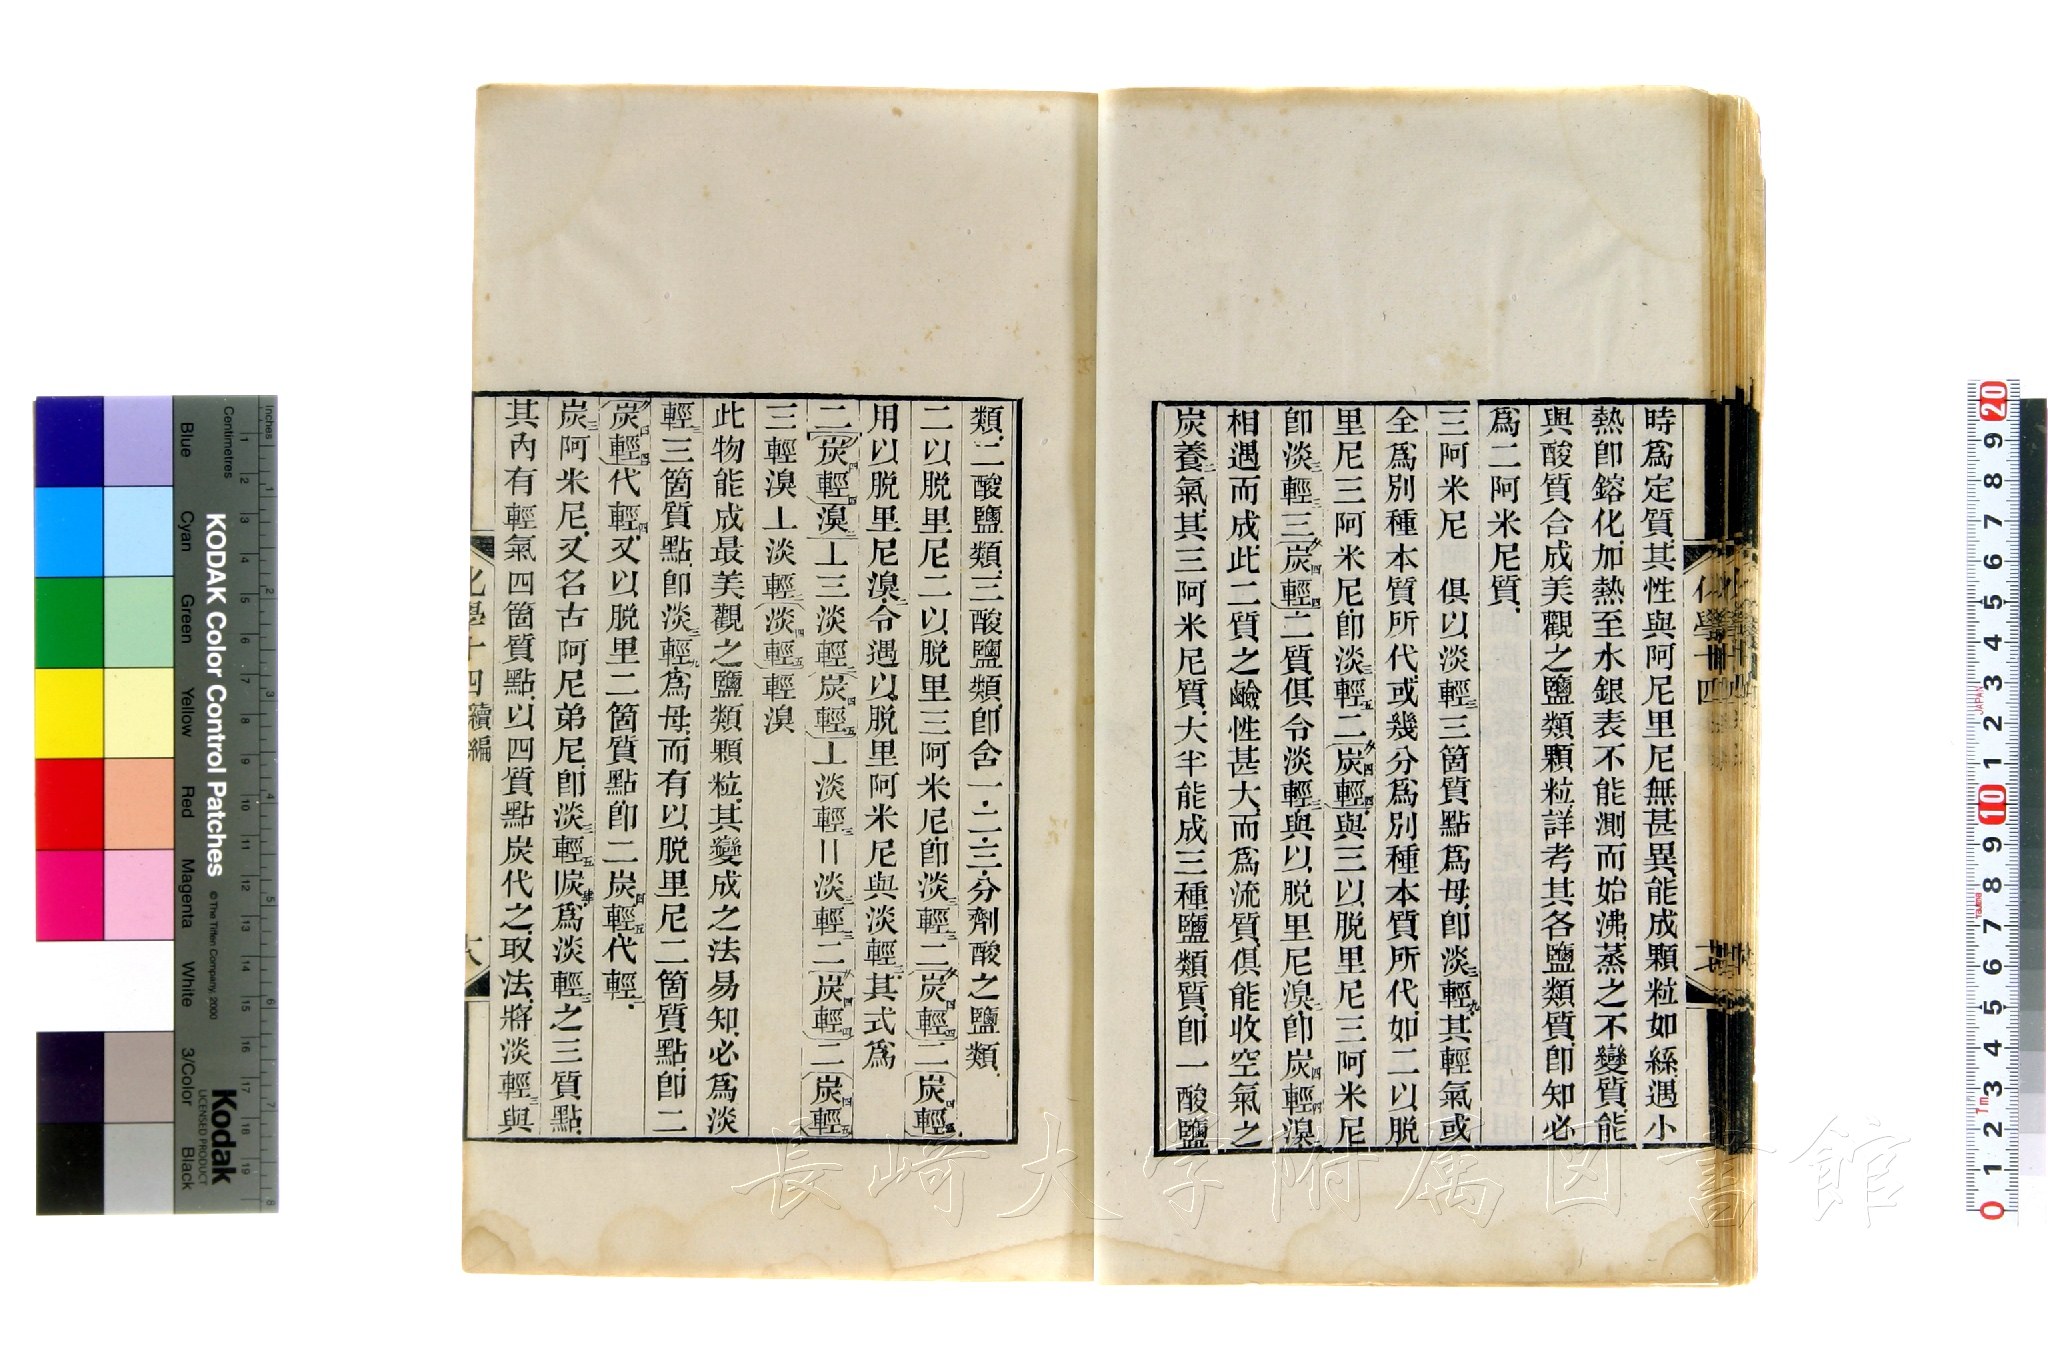 時爲定質其性與阿尼里尼無甚異能成顆粒如絲遇小
熱卽鎔化加熱至水銀表不能測而始沸蒸之不變質能
與酸質合成美觀之鹽類顆粒詳考其各鹽類質卽知必
爲二阿米尼質
三阿米尼 俱以淡輕三三箇質點爲母卽淡三輕九其輕氣或
全爲別種本質所代或幾分爲別種本質所代如二以脫
里尼三阿米尼卽淡三輕五二(炭四輕四)與三以脫里尼三阿米尼
卽淡三輕三三(炭四輕四)二質俱令淡輕三與以脫里尼溴二卽炭四輕四溴二
相遇而成此二質之鹼性甚大而爲流質俱能收空氣之
炭養二氣其三阿米尼質大半能成三種鹽類質卽一酸鹽
類二酸鹽類三酸鹽類卽含一二三分劑酸之鹽類
二以脫里尼二以脫里三阿米尼卽淡三輕三二(炭四輕四)二(炭四輕五)
用以脫里尼溴二令遇以脫里阿米尼與淡輕三其式爲
二(炭四輕四溴二)⊥三淡輕二(炭四輕五)⊥淡輕三=淡三輕三二(炭四輕四)二(炭四輕五)
三輕溴⊥淡輕三(淡四輕五)輕溴
此物能成最美觀之鹽類顆粒其變成之法易知必爲淡
輕三三箇質點卽淡三輕九爲母而有以脫里尼二箇質點卽二
(炭四輕四)代輕四又以脫里二箇質點卽二炭四輕五代輕二
炭三阿米尼又名古阿尼弟尼卽淡三輕五炭爲淡輕三之三質點
其內有輕氣四箇質點以四質點炭代之取法將淡輕三與
化學十四 續編
十八
化學十四
十七
長崎大学附属図書館
KODAK Color Control Patches
© The Tiffen Company, 2000
Kodak
LICENSED PRODUCT
Blue
Cyan
Green
Yellow
Red
Magenta
White
3/Color
Black
Inches
Centimetres
JAPAN